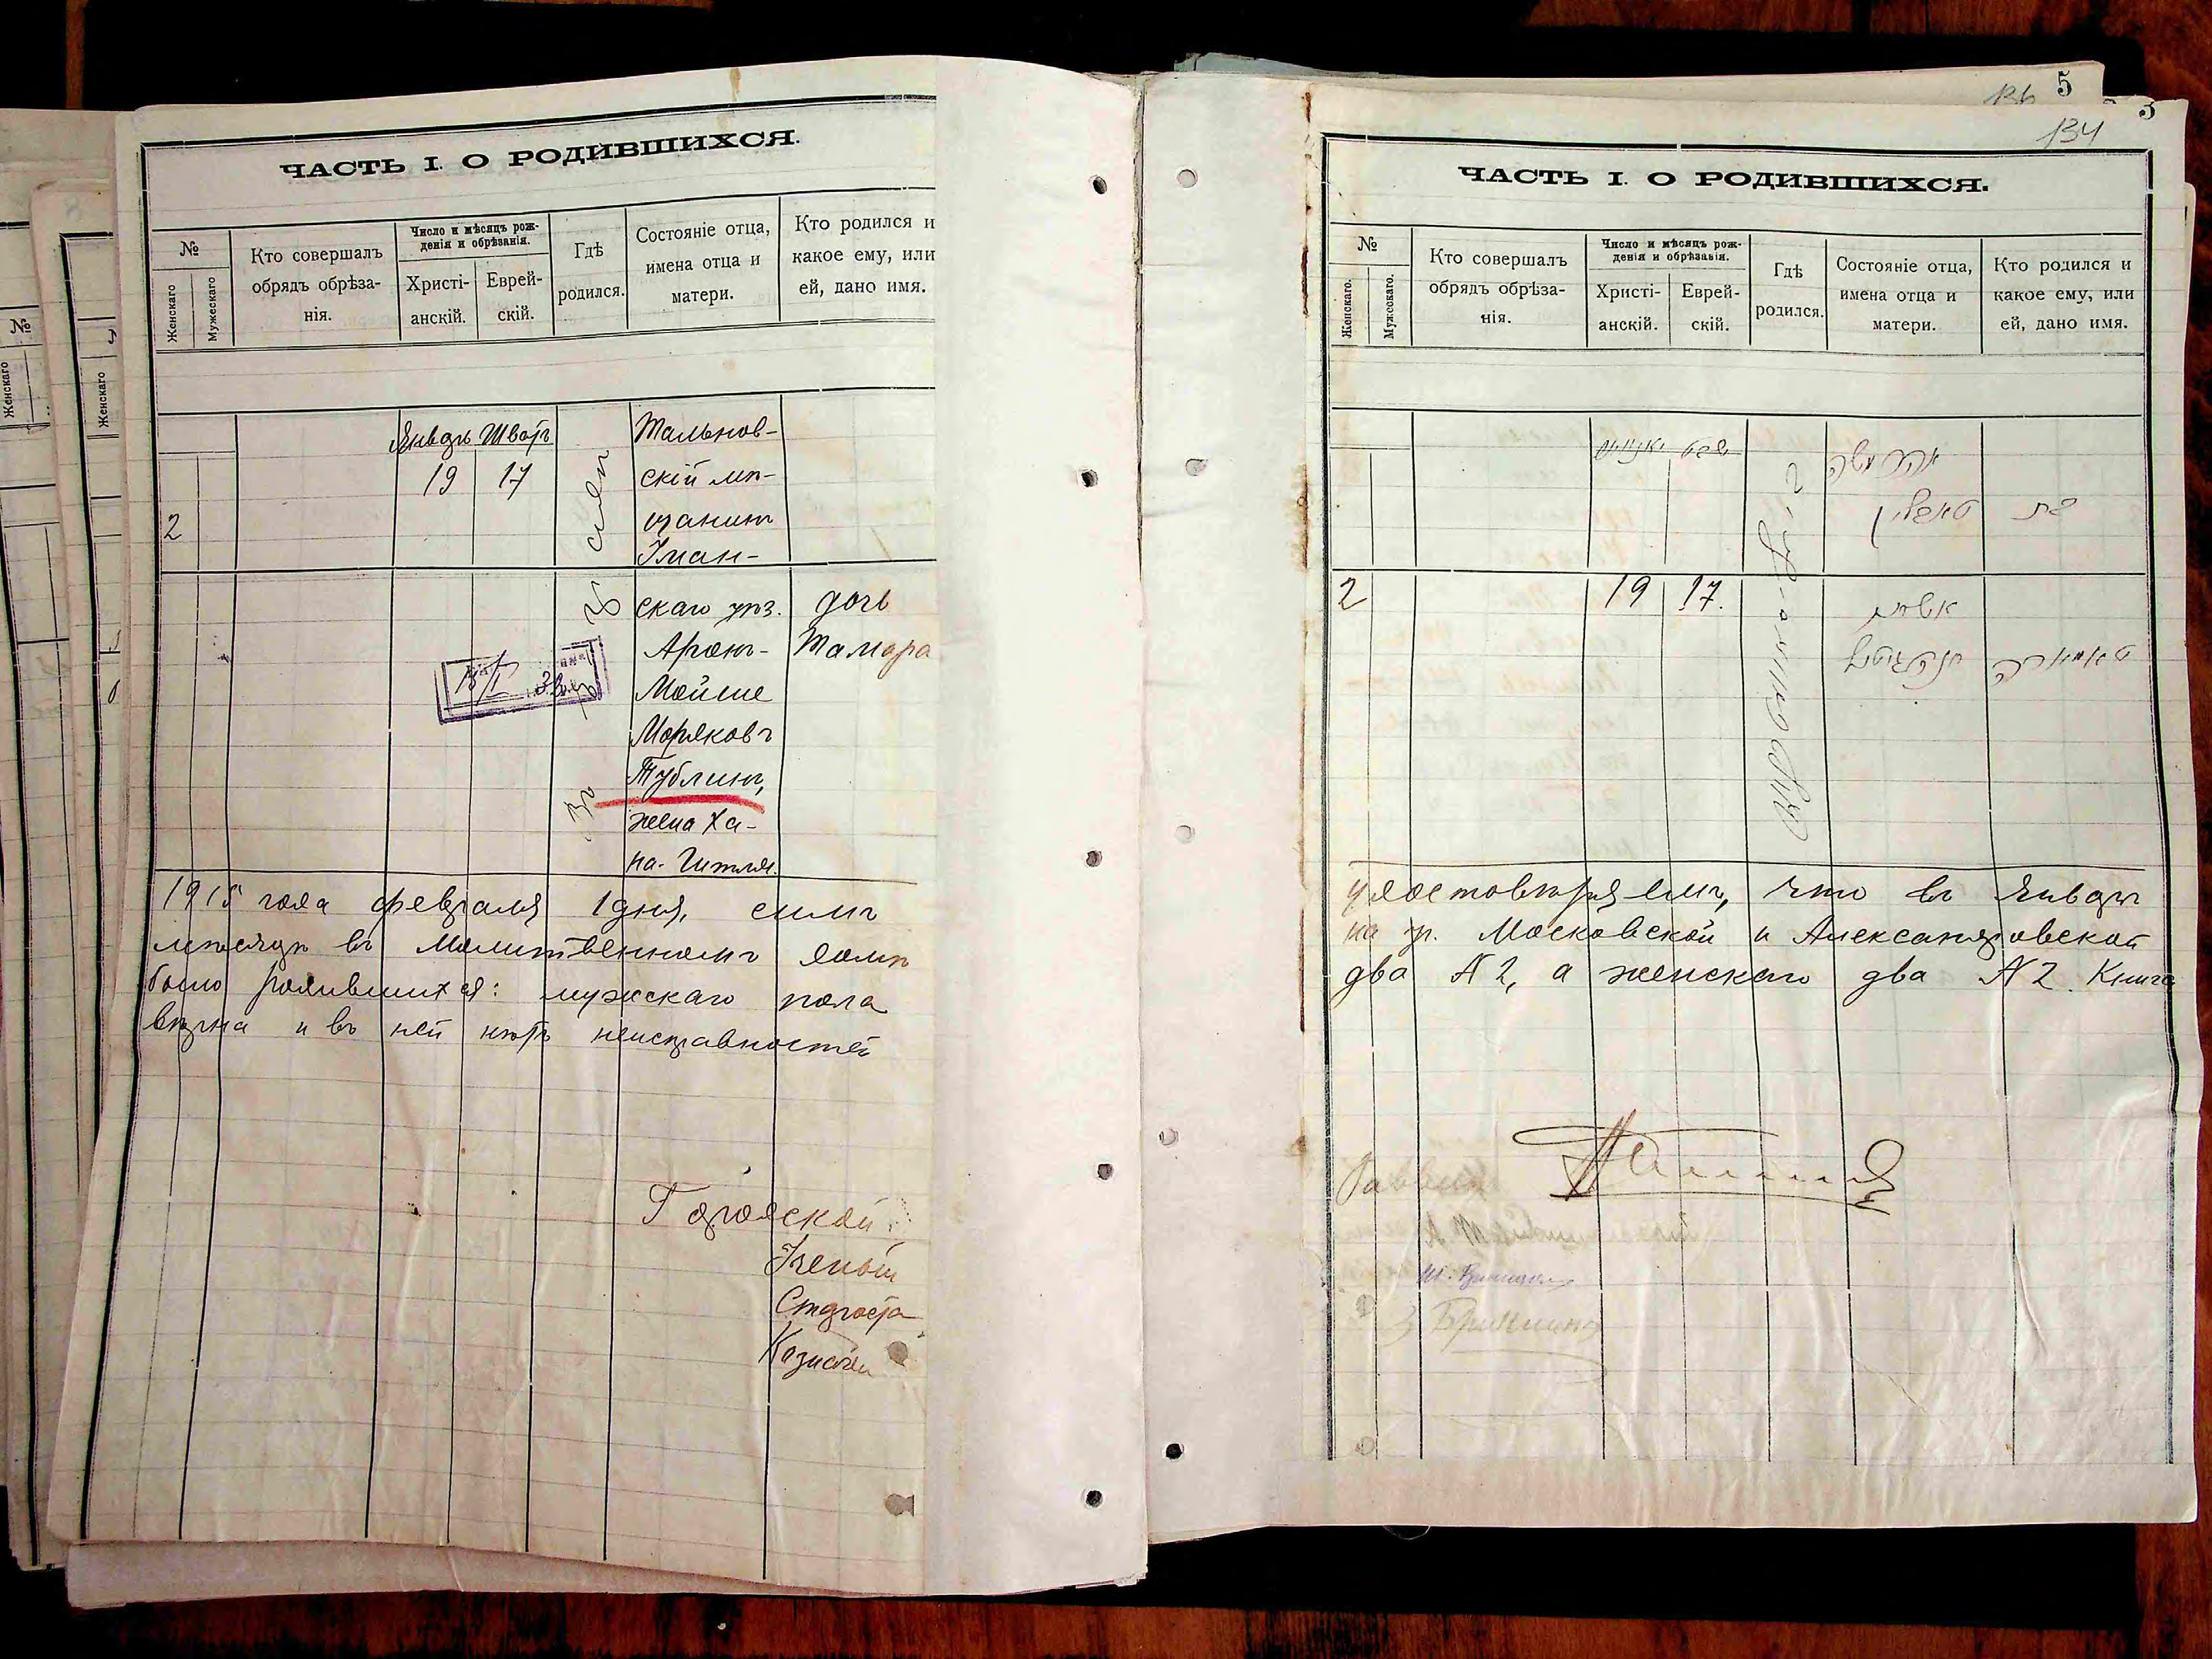 ЧАСТЬ I. О РОДИВШИХСЯ.
№
Женскаго
Мужескаго
Кто совершалъ
обрядъ обрѣза-
нія.
Число и мѣсяцъ рож-
денія и обрѣзанія.
Христі-
анскій.
Еврей-
скій.
Гдѣ
родился.
Состояніе отца,
имена отца и
матери.
Кто родился и
какое ему, или
ей, дано имя.
Январь Шватъ
19 17
2
Тальнов-
скій мѣ-
щанинъ
Уман-
скаго уѣз.
Аронъ-
Мойше
Моряковъ
Тублинъ,
жена Ха-
на-Гитля.
дочь
Тамара
1915 года февраля 1 дня, симъ
мѣсяцѣ въ Молитвенномъ домѣ
было родившихся: мужскаго пола
вѣрна и въ ней нѣтъ неисправностей
Городской
Ученый
Староста
Казначей
5
136
3
134
ЧАСТЬ I. О РОДИВШИХСЯ.
№
Женскаго.
Мужескаго.
Кто совершалъ
обрядъ обрѣза-
нія.
Число и мѣсяцъ рож-
денія и обрѣзанія.
Христі-
анскій.
Еврей-
скій.
Гдѣ
родился.
Состояніе отца,
имена отца и
матери.
Кто родился и
какое ему, или
ей, дано имя.
יאנואר שבט
אהרן משה
טאבלין
בת
2 19 17.
אשתו
חנה גיטל
טאמארה
удостовѣряемъ, что въ Январѣ
на ур. Московской и Александровской
два № 2, а женскаго два № 2. Книга
Раввинъ